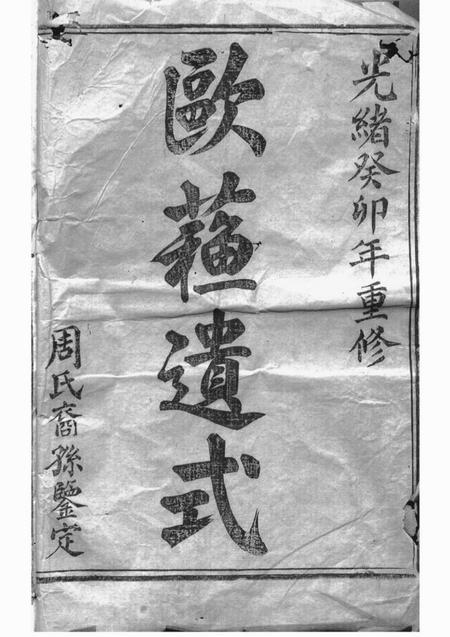 光緒癸卯年重修
歐蘓遺式
周氏裔孫鑒定